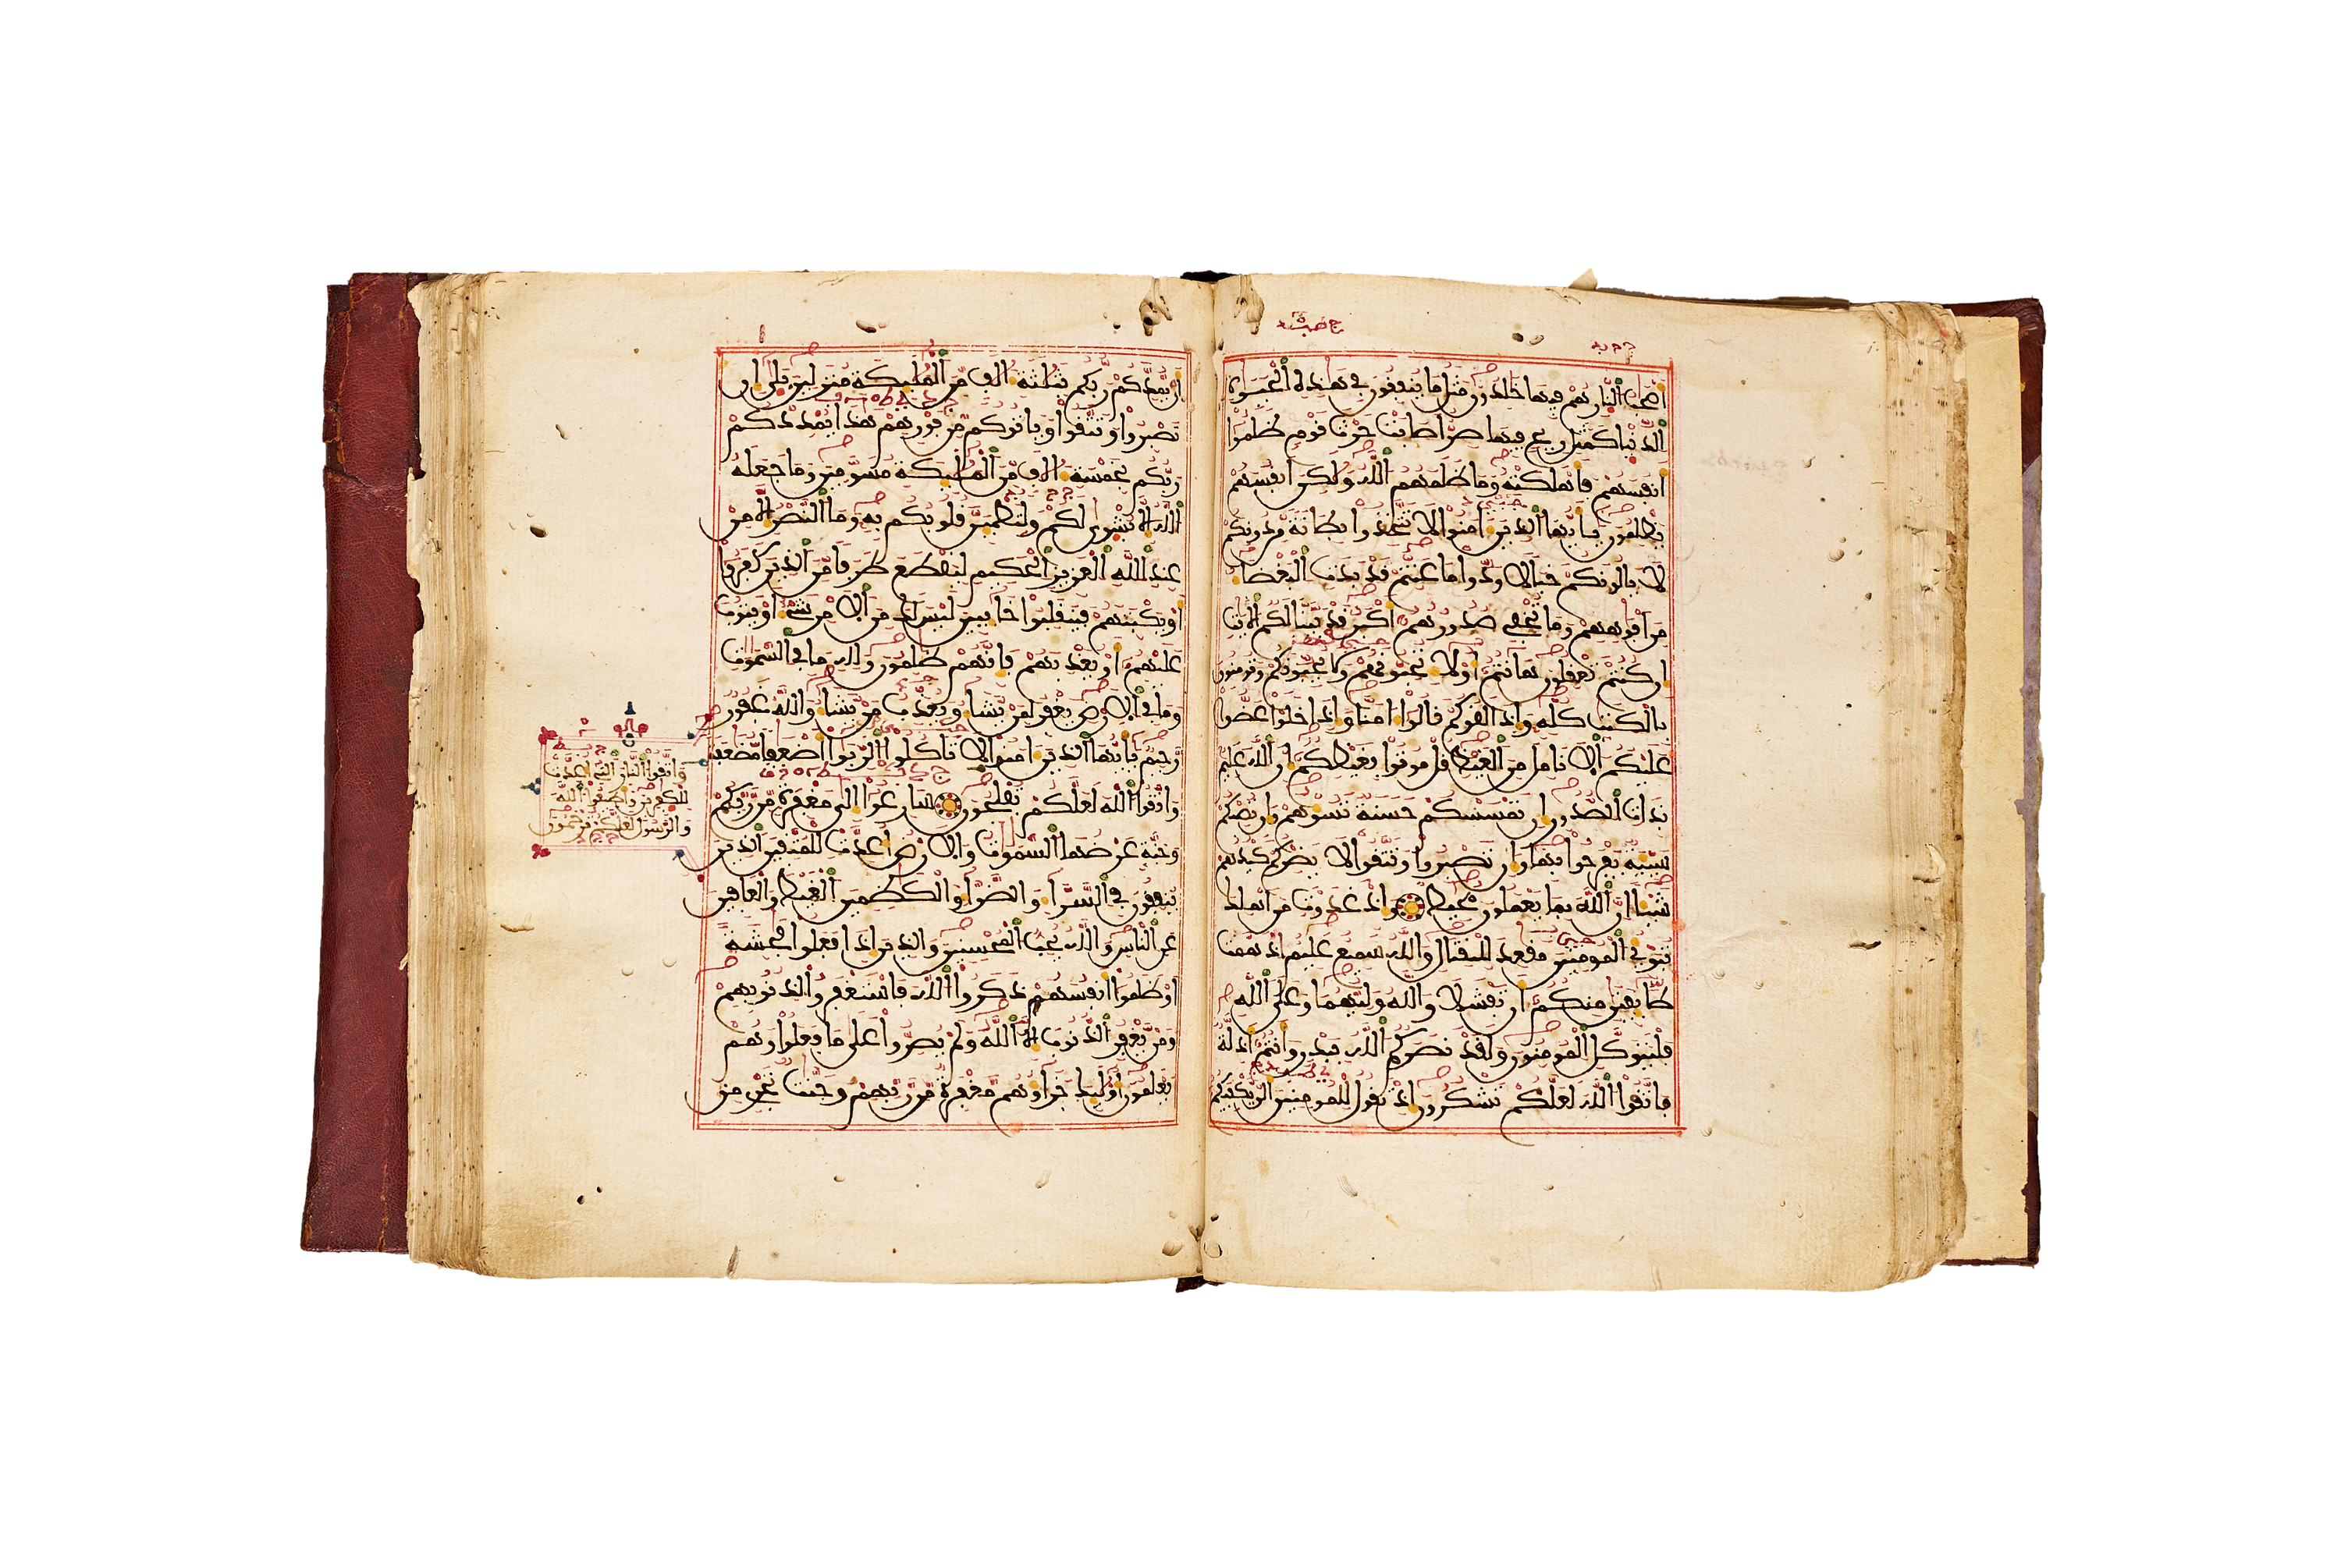 اصحب النار هم فيها خلدون مثل ما ينفقون في هذه الحيوة
الدنيا كمثل ريح فيها صر اصابت حرث قوم ظلموا
انفسهم فاهلكته وما ظلمهم الله ولكن انفسهم
يظلمون يايها الذين امنوا لا تتخذوا بطانة من دونكم
لا يالونكم خبالا ودوا ما عنتم قد بدت البغضا
من افوههم وما تخفي صدورهم اكبر قد بينا لكم الايت
ان كنتم تعقلون هانتم اولا تحبونهم ولا يحبونكم وتومنون
بالكتب كله واذا لقوكم قالوا امنا واذا خلوا عضوا
عليكم الانامل من الغيظ قل موتوا بغيظكم ان الله عليم
بذات الصدور ان تمسسكم حسنة تسوهم وان تصبكم
سيية يفرحوا بها وان تصبروا وتتقوا لا يضركم كيدهم
شيا ان الله بما يعملون محيط واذ غدوت من اهلك
تبوئ المومنين مقعد للقتال والله سميع عليم اذ همت
طايفتن منكم ان تفشلا والله وليهما وعلى الله
فليتوكل المومنون ولقد نصركم الله ببدر وانتم اذلة
فاتقوا الله لعلكم تشكرون اذ تقول للمومنين الن يكفيكم
ان يمدكم ربكم بثلثة الف من المليكة منزلين بلى ان
تصبروا وتتقوا وياتوكم من فورهم هذا يمددكم
ربكم بخمسة الف من المليكة مسومين وما جعله
الله الا بشرى لكم ولتطمين قلوبكم به وما النصر الا من
عند الله العزيز الحكيم ليقطع طرفا من الذين كفروا
او يكبتهم فينقلبوا خايبين ليس لك من الامر شي او يتوب
عليهم او يعذبهم فانهم ظلمون ولله ما في السموت
وما في الارض يغفر لمن يشا ويعذب من يشا والله غفور
رحيم يايها الذين امنوا لا تاكلوا الربوا اضعفا مضعفة
واتقوا الله لعلكم تفلحون سارعوا الى مغفرة من ربكم
وجنة عرضها السموت والارض اعدت للمتقين الذين
ينفقون في السرا والضرا والكظمين الغيظ والعافين
عن الناس والله يحب المحسنين والذين اذا فعلوا فحشة
او ظلموا انفسهم ذكروا الله فاستغفروا لذنوبهم
ومن يغفر الذنوب الا الله ولم يصروا على ما فعلوا وهم
يعلمون اوليك جزاوهم مغفرة من ربهم وجنت تجري من
واتقوا النار التي اعدت
للكفرين واطيعوا الله
والرسول لعلكم ترحمون